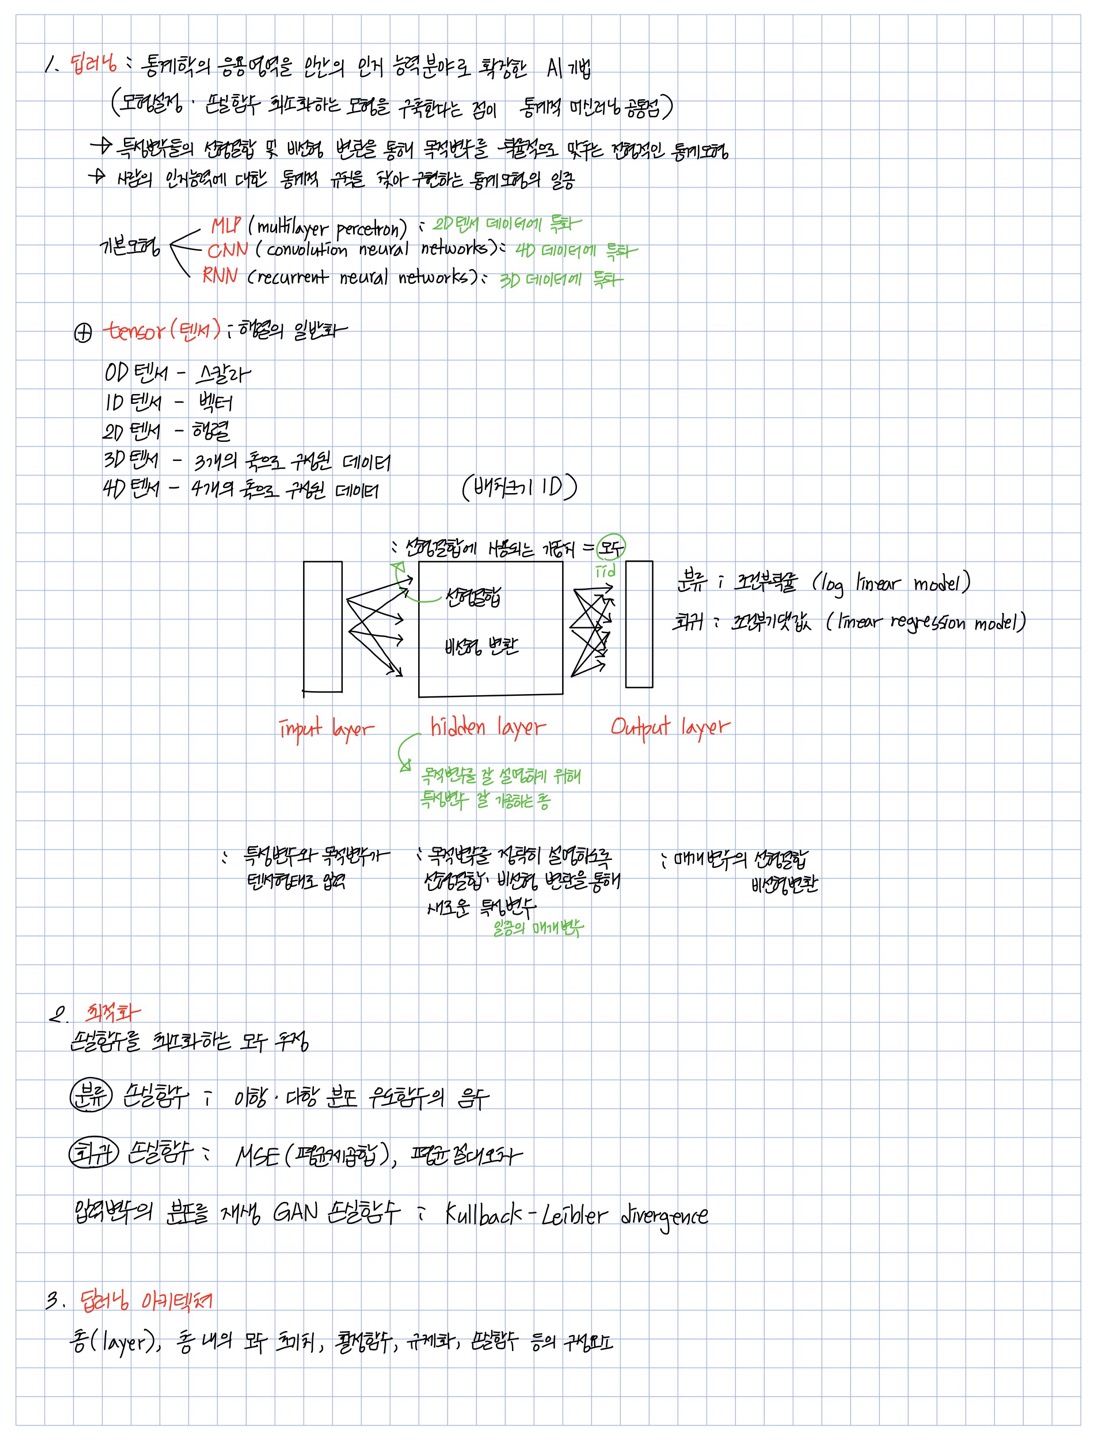 1. 딥러닝 : 통계학의 응용영역을 인간의 인지 능력분야로 확장한 AI 기법
(모형설정 · 손실함수 최소화하는 모형을 구축한다는 점이 통계적 머신러닝 공통점)
→ 특성변수들의 선형결합 및 비선형 변환을 통해 목적변수를 확률적으로 맞추는 전형적인 통계모형
→ 사람의 인지능력에 대한 통계적 규칙을 찾아 구현하는 통계모형의 일종
기본모형
MLP (multilayer percetron) : 2D텐서 데이터에 특화
CNN (convolution neural networks) : 4D 데이터에 특화
RNN (recurrent neural networks) : 3D 데이터에 특화
⊕ tensor(텐서) ; 행렬의 일반화
0D 텐서 - 스칼라
1D 텐서 - 벡터
2D 텐서 - 행렬
3D 텐서 - 3개의 축으로 구성된 데이터
4D 텐서 - 4개의 축으로 구성된 데이터 (배치크기 1D)
: 선형결합에 사용되는 가중치 = 모수
iid
선형결합
비선형 변환
분류 ; 조건부확률 (log linear model)
회귀 : 조건부기댓값 (linear regression model)
input layer hidden layer Output layer
목적변수를 잘 설명하기 위해
특성변수 잘 가공하는 층
: 특성변수와 목적변수가
텐서형태로 입력
: 목적변수를 정확히 설명하도록
선형결합 · 비선형 변환을 통해
새로운 특성변수
일종의 매개변수
; 매개변수의 선형결합
비선형변환
2. 최적화
손실함수를 최소화하는 모수 추정
분류 손실함수 ; 이항 · 다항 분포 우도함수의 음수
회귀 손실함수 : MSE (평균제곱합), 평균절대오차
입력변수의 분포를 재생 GAN 손실함수 ; Kullback-Leibler divergence
3. 딥러닝 아키텍쳐
층(layer), 층 내의 모수 초기치, 활성함수, 규제화, 손실함수 등의 구성요소